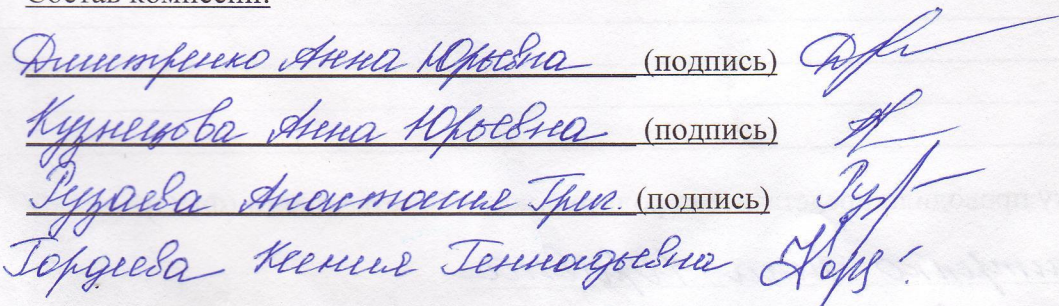 Состав комиссии:
Дмитренко Анна Юрьевна (подпись)
Кузнецова Анна Юрьевна (подпись)
Рузаева Анастасия Григ. (подпись)
Гордеева Ксения Геннадьевна